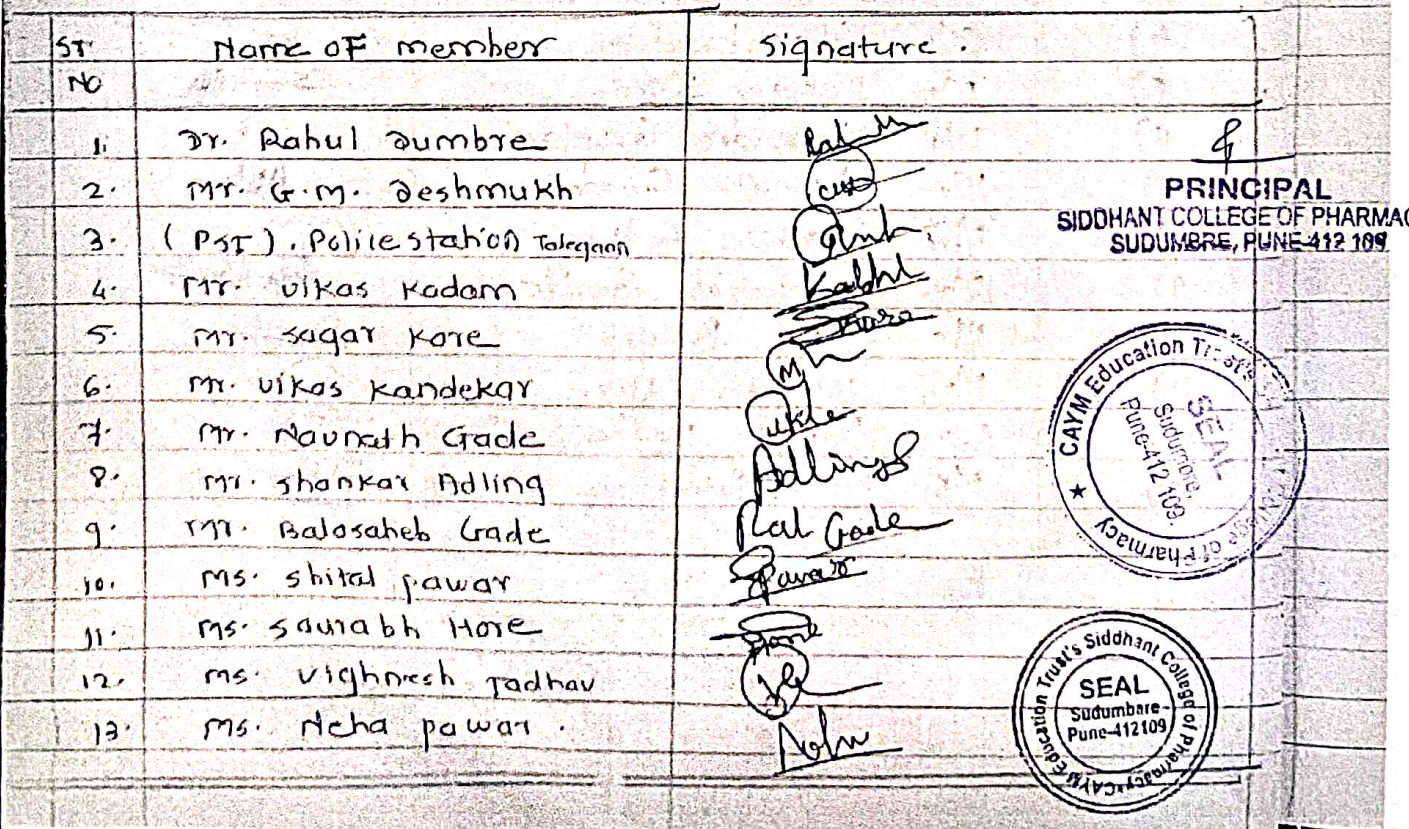 Sr. Name OF member Signature.
NO
1. Dr. Rahul Dumbre
2. Mr. G.M. Deshmukh
3. (PSI). Police station Talegaon
4. Mr. Vikas Kadam
5. Mr. Sagar Kore
6. Mr. Vikas Kandekar
7. Mr. Navnath Gade
8. Mr. Shankar Adling Adling
9. Mr. Balasaheb Gade Gade
10. Ms. Shital Pawar Pawar
11. Ms. Saurabh Hore
12. Ms. Vighnesh Jadhav
13. Ms. Neha Pawar.
PRINCIPAL
SIDDHANT COLLEGE OF PHARMAC
SUDUMBRE, PUNE-412 109
CAYM Education Trust's
of Pharmacy
SEAL
Sudumbre,
Pune-412 109.
CAYM Education Trust's Siddhant College of Pharmacy
SEAL
Sudumbare
Pune-412109